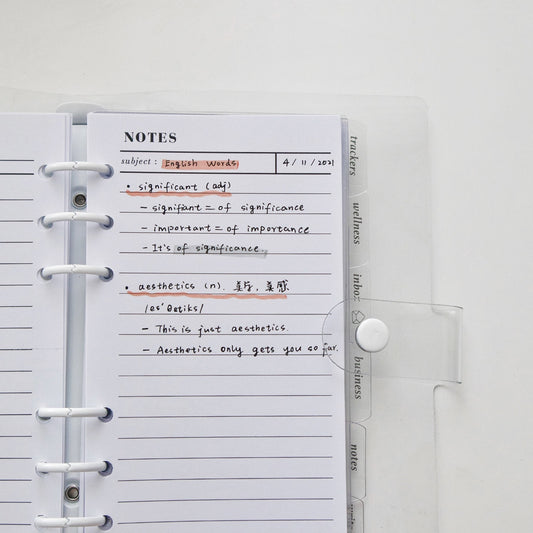 NOTES
subject : English Words 4/11/2021
• significant (adj)
- signifiant = of significance
- important = of importance
- It's of significance.
• aesthetics (n). 美学, 美感
/es'θetiks/
- This is just aesthetics.
- Aesthetics only gets you so far.
trackers
wellness
inbox
business
notes